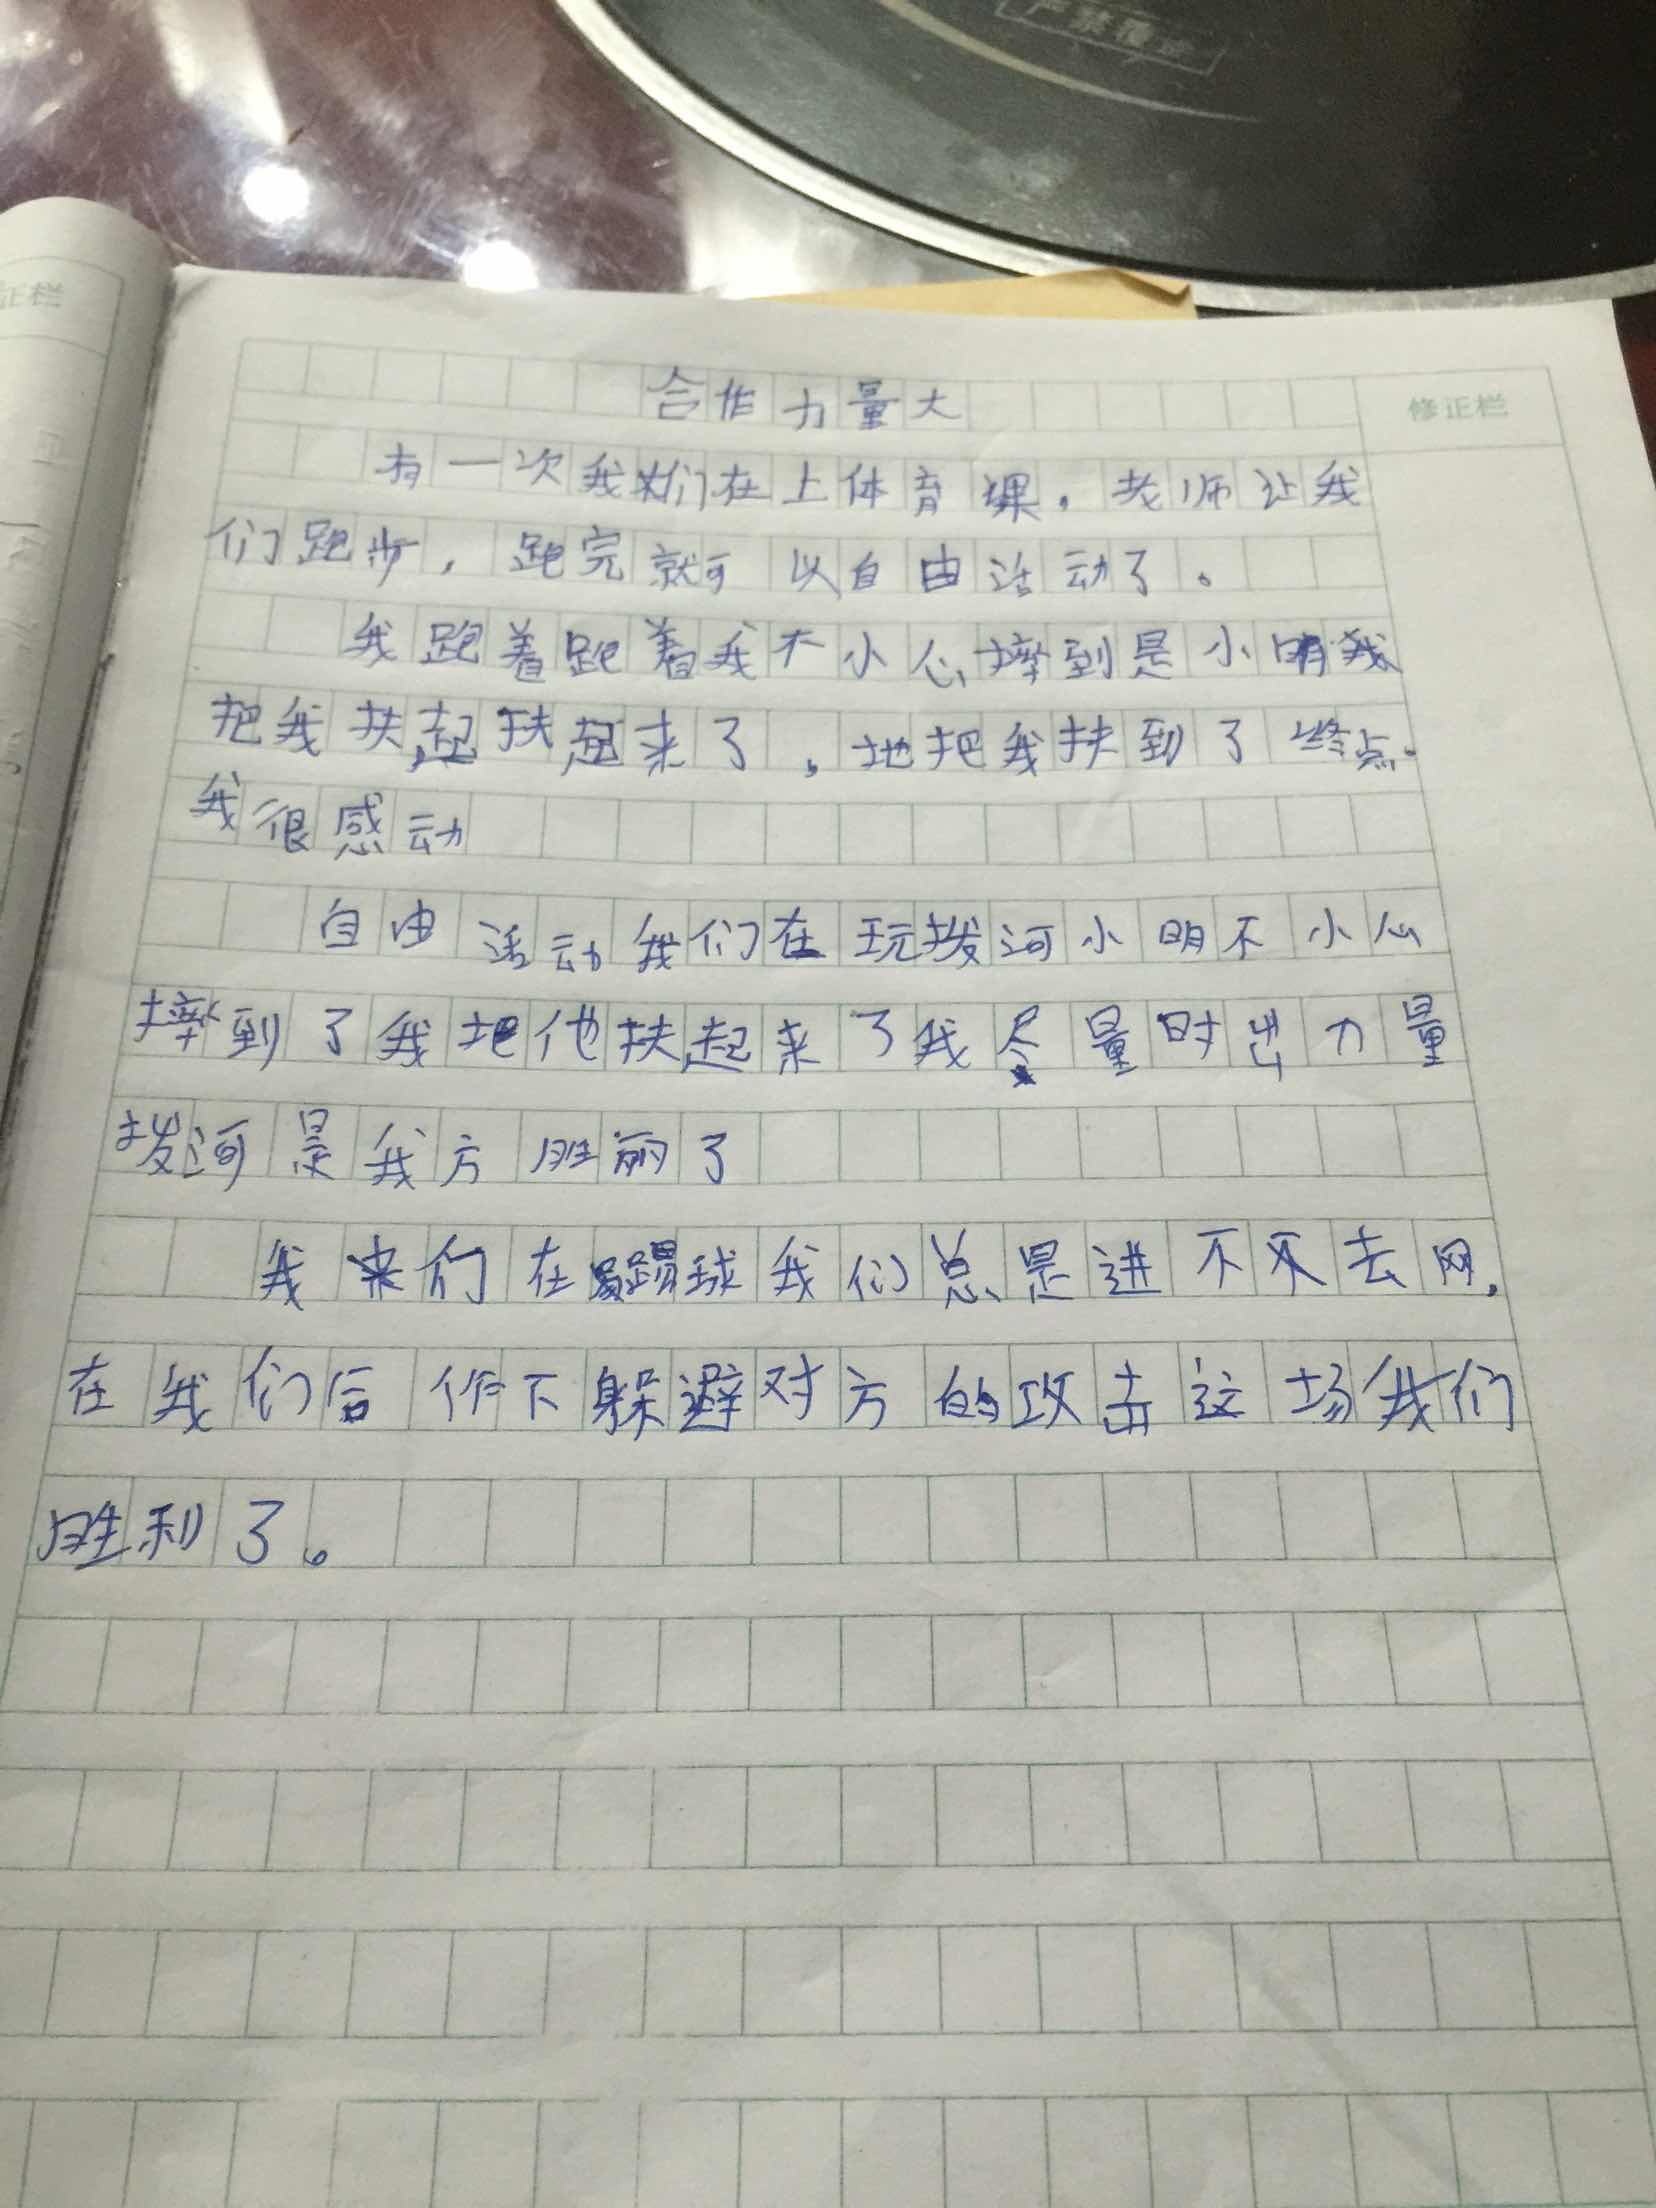 严禁覆盖
正栏
修正栏
合作力量大
有一次我们在上体育课，老师让我
们跑步，跑完就可以自由活动了。
我跑着跑着我不小心摔到是小明
把我扶起扶起来了，地把我扶到了终点.
我很感动
自由活动我们在玩拨河小明不小心
摔到了我把他扶起来了我尽量时出力量
拨河是我方胜丽了
我们在踢球我们总是进不不去网，
在我们后作下躲避对方的攻击这场我们
胜利了。